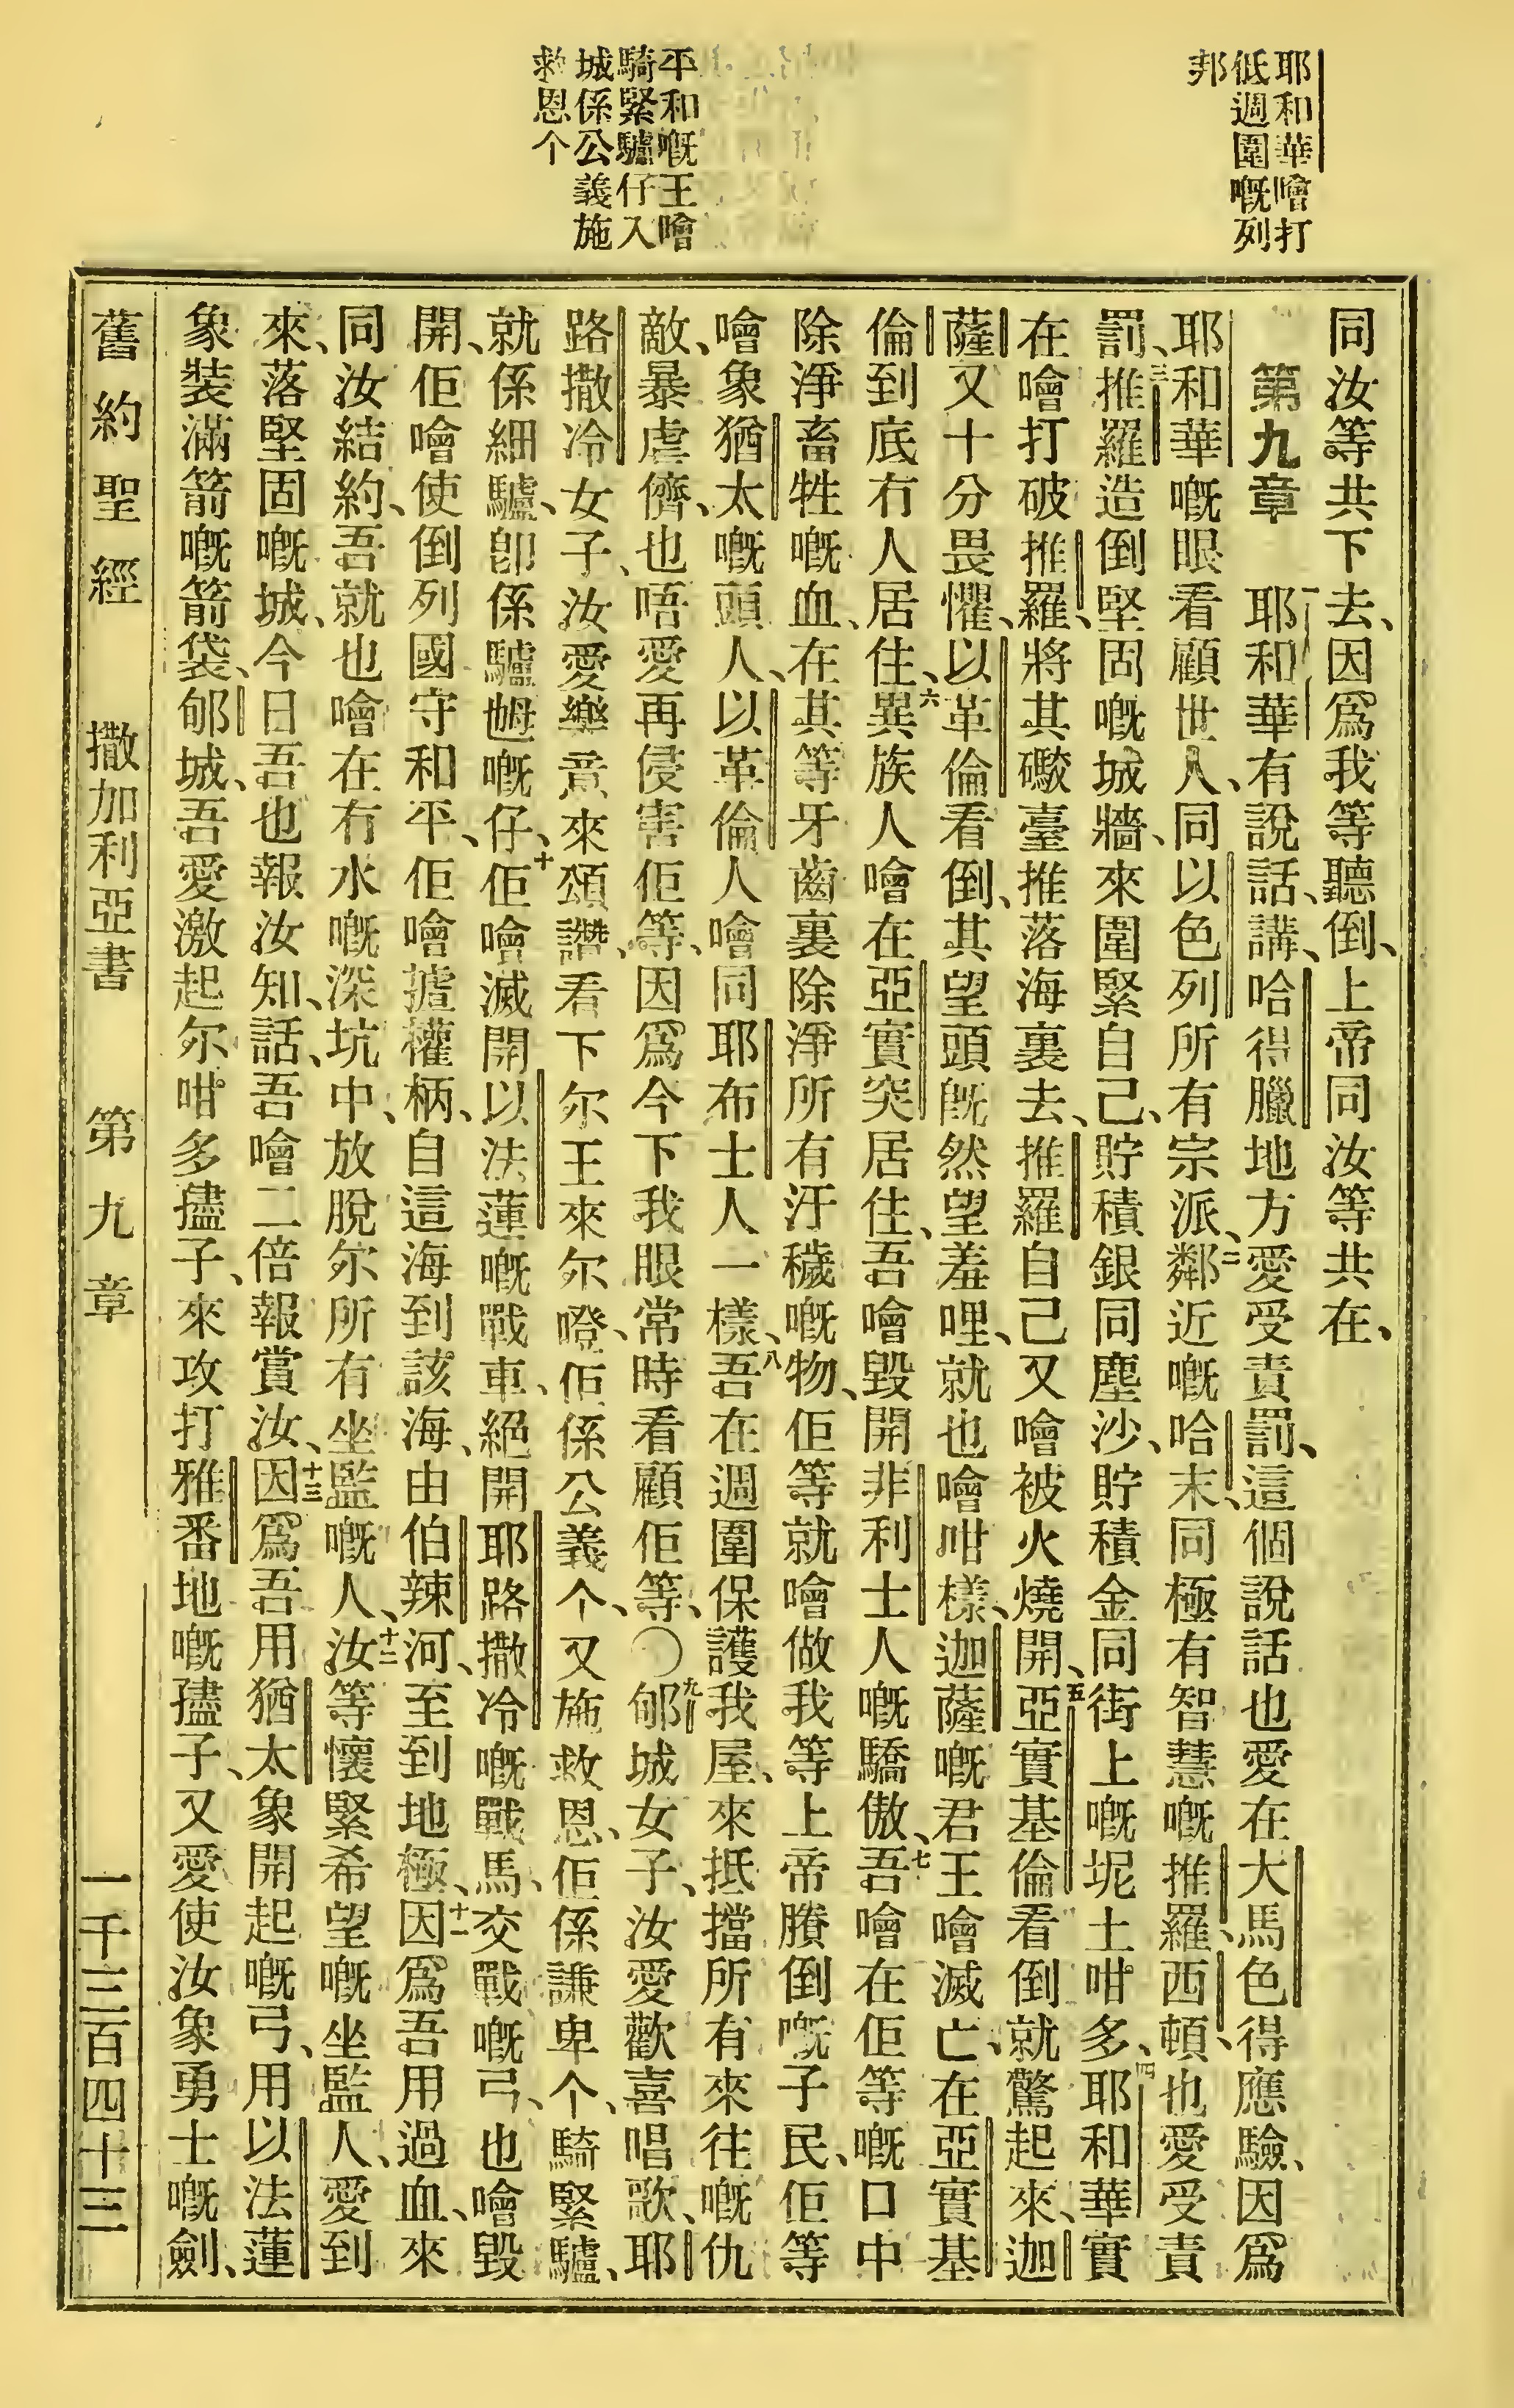 耶和華噲打
低週圍嘅列
邦
平和嘅王噲
騎緊驢仔入
城係公義施
救恩个
同汝等共下去、因爲我等聽倒、上帝同汝等共在、
第九章 耶和華有說話、講、哈得臘地方愛受責罰、這個說話也愛在大馬色得應驗、因爲
耶和華嘅眼看顧世人、同以色列所有宗派、二鄰近嘅哈末、同極有智慧嘅推羅、西頓、也愛受責
罰、三推羅造倒堅固嘅城牆、來圍緊自己、貯積銀同塵沙、貯積金同街上嘅坭土咁多、四耶和華實
在噲打破推羅、將其礮臺推落海裏去、推羅自己又噲被火燒開、五亞實基倫看倒就驚起來、迦
薩又十分畏懼、以革倫看倒、其望頭既然望羞哩、就也噲咁樣、迦薩嘅君王噲滅亡、在亞實基
倫到底冇人居住、六異族人噲在亞實突居住、吾噲毀開非利士人嘅驕傲、七吾噲在佢等嘅口中
除淨畜牲嘅血、在其等牙齒裏除淨所有汙穢嘅物、佢等就噲做我等上帝賸倒嘅子民、佢等
噲象猶太嘅頭人、以革倫人噲同耶布士人一樣、八吾在週圍保護我屋、來抵擋所有來往嘅仇
敵、暴虐儕、也唔愛再侵害佢等、因爲今下我眼常時看顧佢等、〇九郇城女子、汝愛歡喜唱歌、耶
路撒冷女子、汝愛樂意來頌讚、看下尔王來尔噔、佢係公義个、又施救恩、佢係謙卑个、騎緊驢、
就係細驢、卽係驢𡜵嘅仔、十佢噲滅開以法蓮嘅戰車、絕開耶路撒冷嘅戰馬、交戰嘅弓、也噲毀
開、佢噲使倒列國守和平、佢噲摣權柄、自這海到該海、由伯辣河、至到地極、十一因爲吾用過血、來
同汝結約、吾就也噲在冇水嘅深坑中、放脫尔所有坐監嘅人、十二汝等懷緊希望嘅坐監人、愛到
來、落堅固嘅城、今日吾也報汝知、話、吾噲二倍報賞汝、十三因爲吾用猶太象開起嘅弓、用以法蓮
象裝滿箭嘅箭袋、郇城、吾愛激起尔咁多𡥧子、來攻打雅番地嘅𡥧子、又愛使汝象勇士嘅劍、
舊約聖經 撒加利亞書 第九章 一千三百四十三